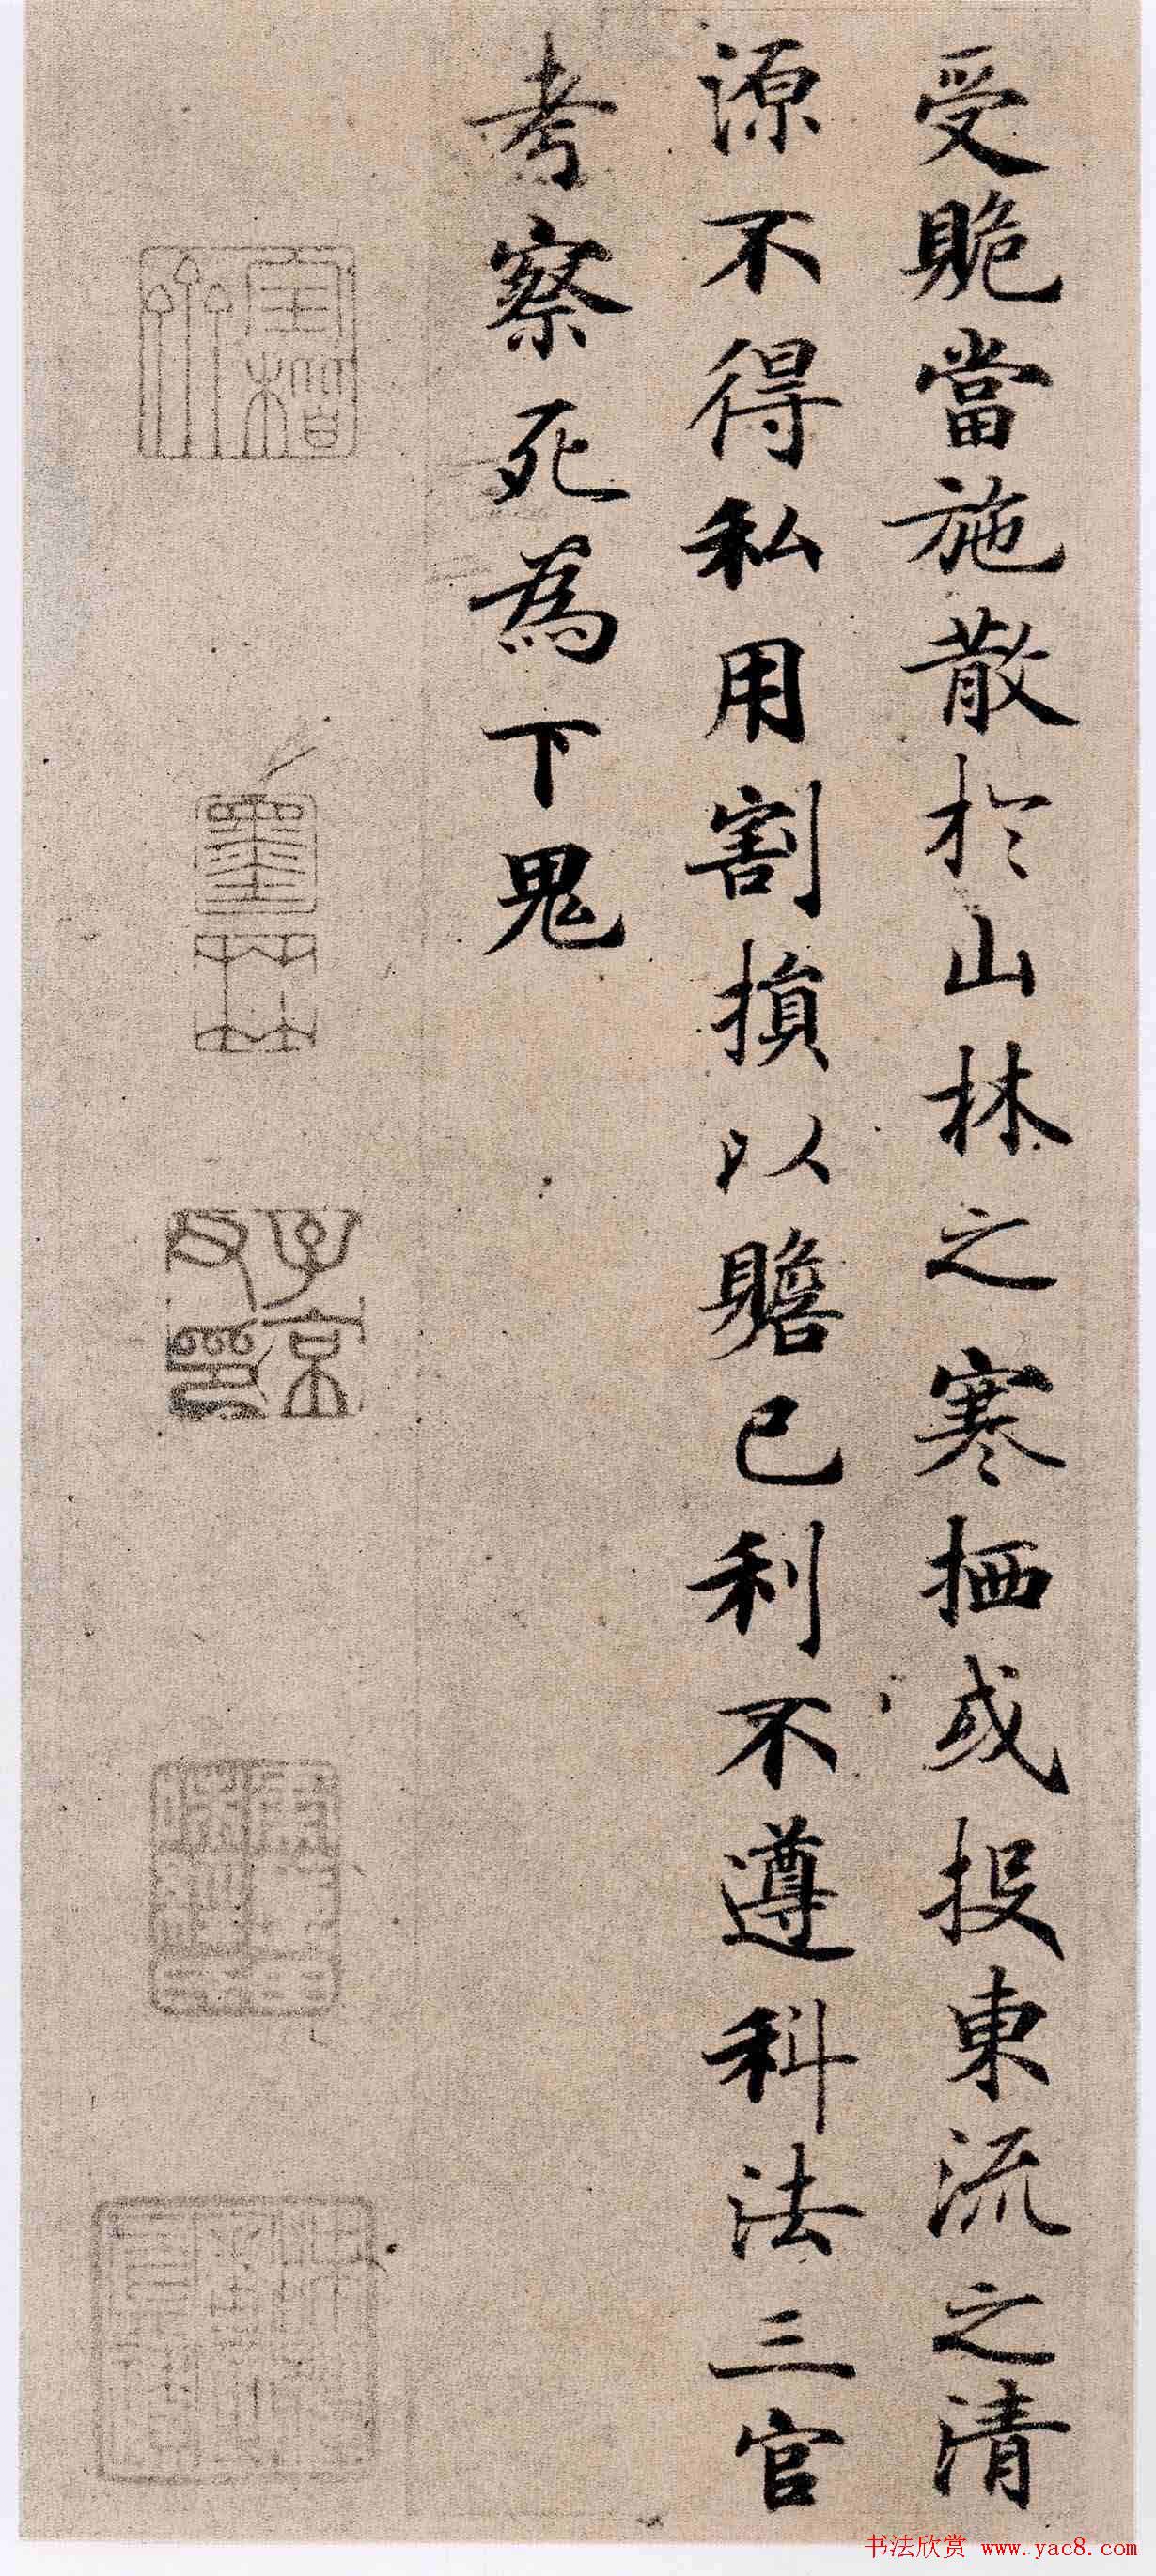 受賲當施散於山林之寒栖或投東流之清
源不得私用割損以贍已利不遵科法三官
考察死為下鬼
墨林
子京父印
书法欣赏 www.yac8.com